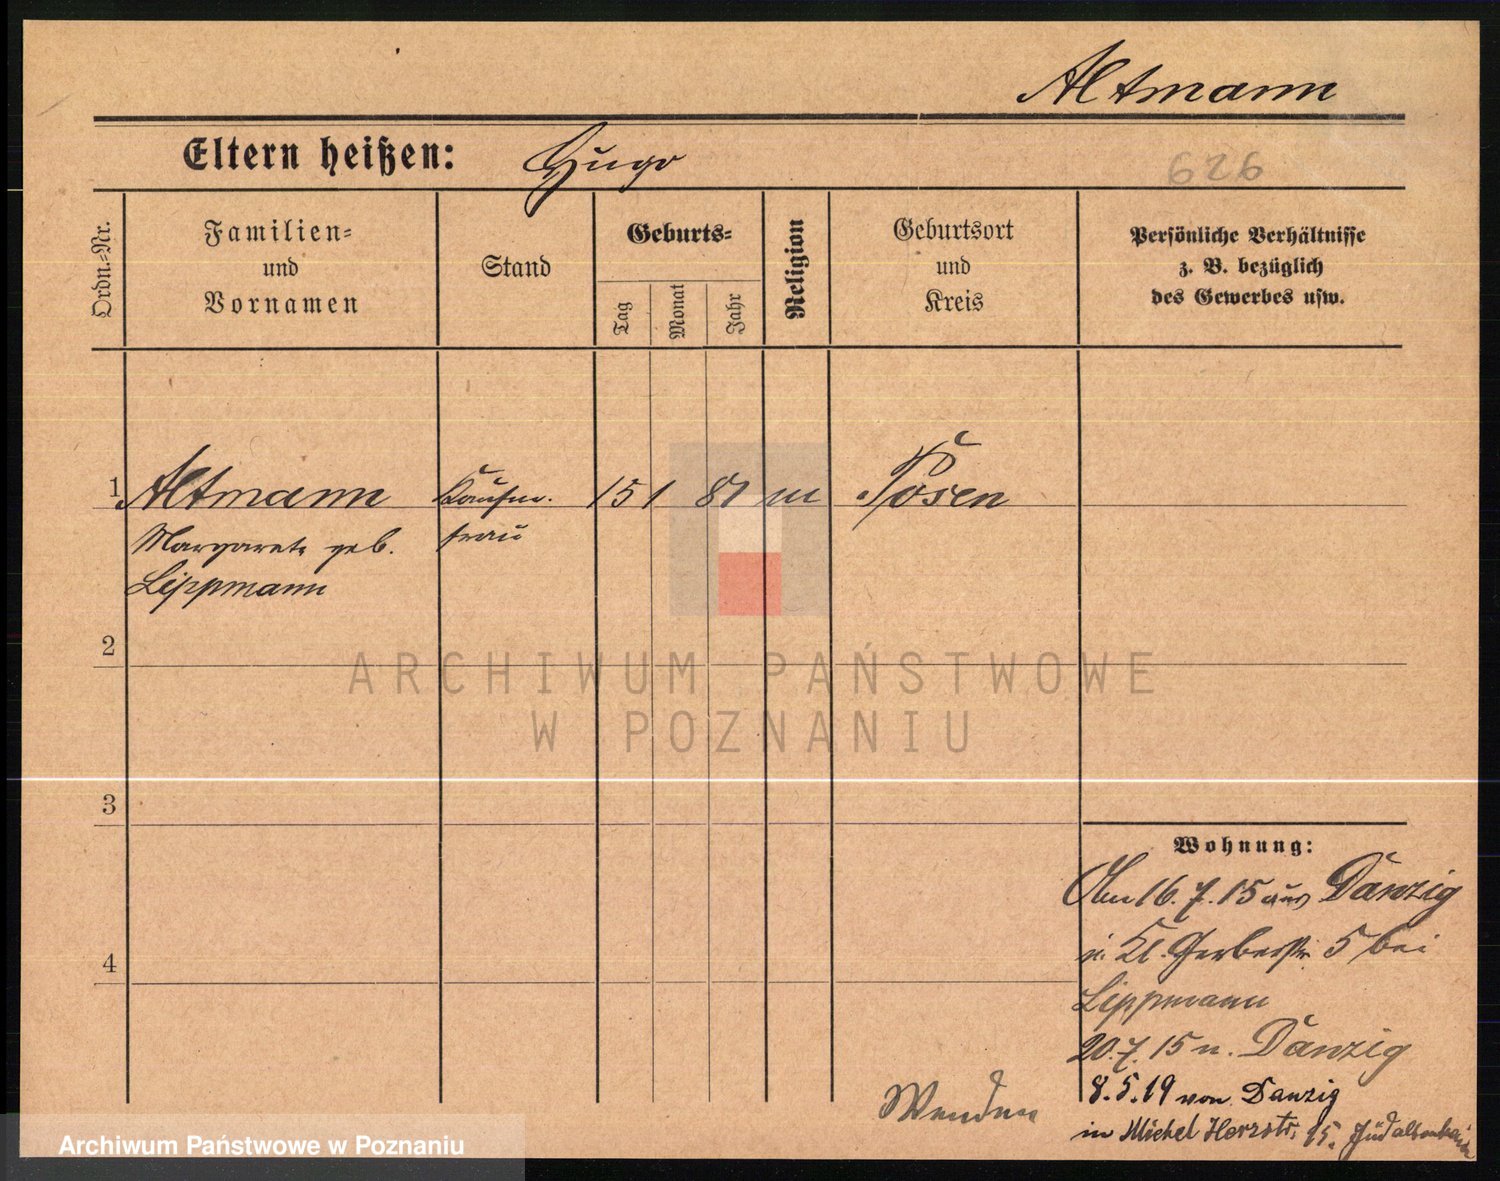 Altmann
Eltern heißen: Hugo
626
Ordn.-Nr.
Familien-
und
Vornamen
Stand
Geburts-
Tag
Monat
Jahr
Religion
Geburtsort
und
Kreis
Persönliche Verhältnisse
z. B. bezüglich
des Gewerbes usw.
1 Altmann Kaufm. 15 1 81 m Posen
Margarete geb. frau
Lippmann
2
ARCHIWUM PAŃSTWOWE
W POZNANIU
3
Wohnung:
Am 16.7.15 aus Danzig
n. Kl. Gerberstr. 5 bei
4
Lippmann
20.7.15 n. Danzig
8.5.19 von Danzig
Wenden
in Michel Herzstr. 15.
Archiwum Państwowe w Poznaniu